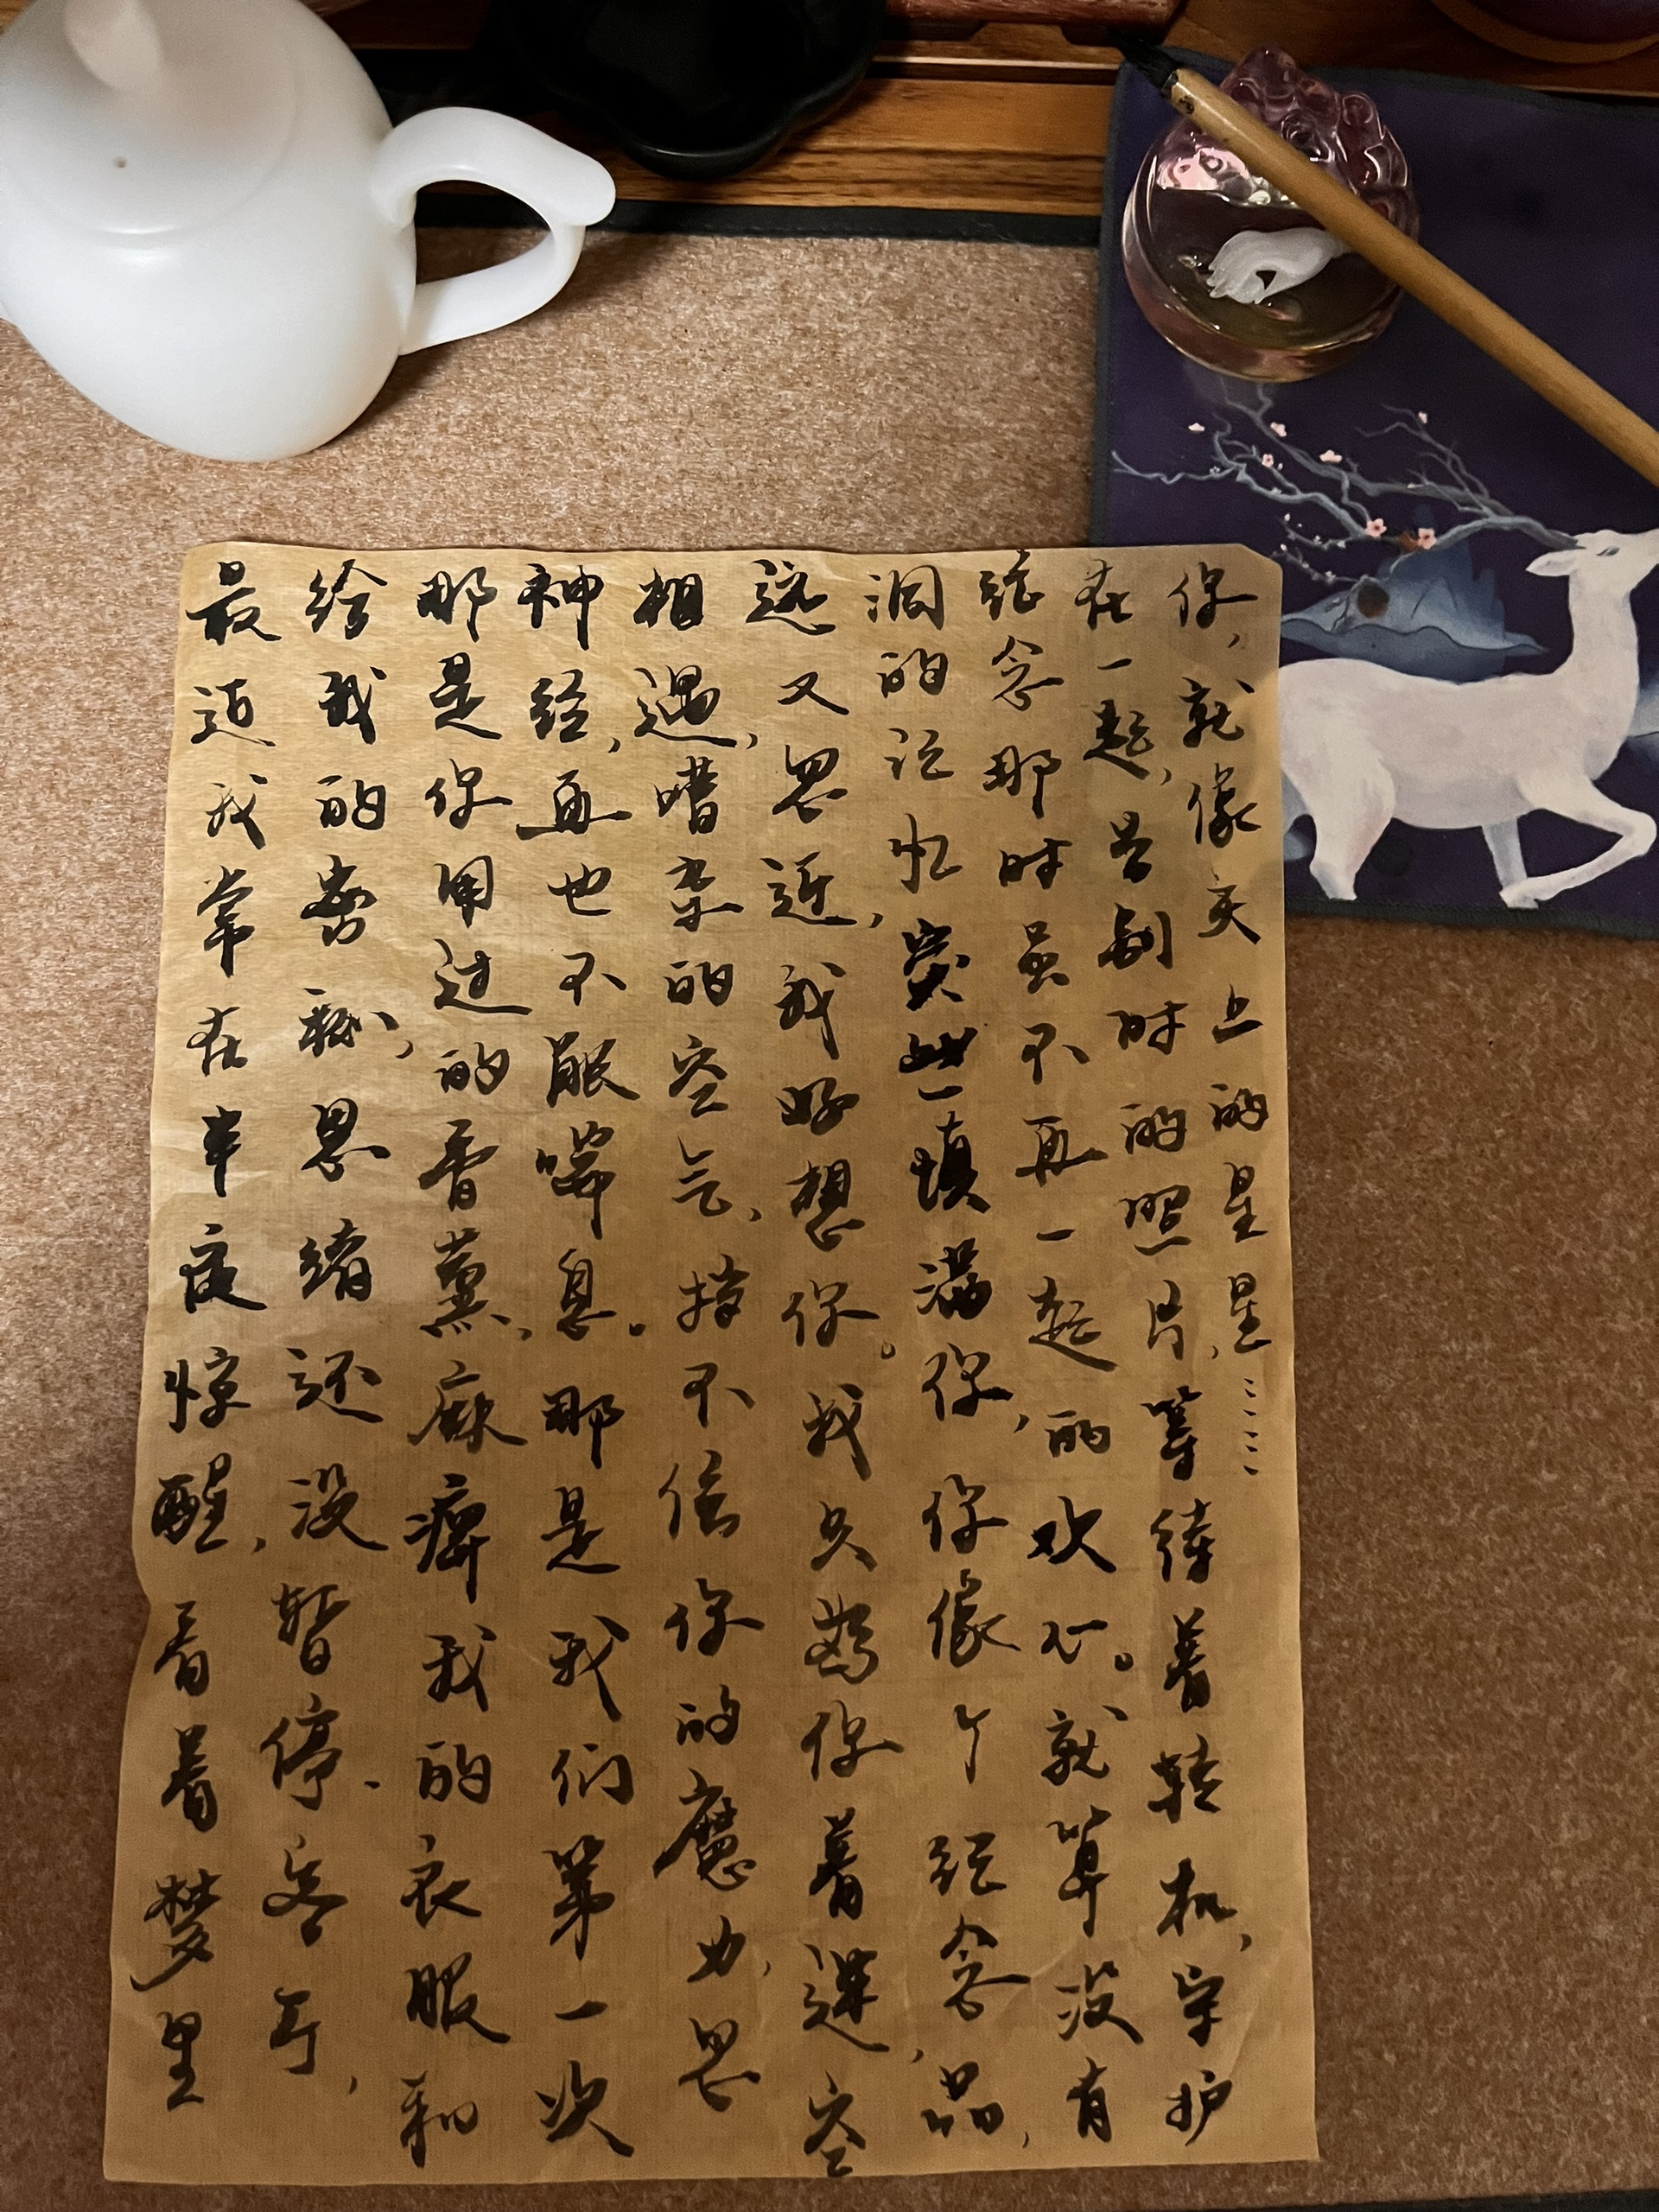 最近我常在半夜惊醒,看着梦里
给我的,思绪还没暂停.客厅,
那是你用过的香薰,麻痹我的衣服和
神经,再也不能喘息。那是我们第一次
相遇,嘈杂的空气,挡不住你的魔力,忽
远又忽近,我好想你。我只为你着迷,空
洞的记忆填满你,你像个纪念品,
纪念那时虽不再一起的欢心。就算没有
在一起,是别时的照片,等待着转机,守护
你,就像天上的星星……